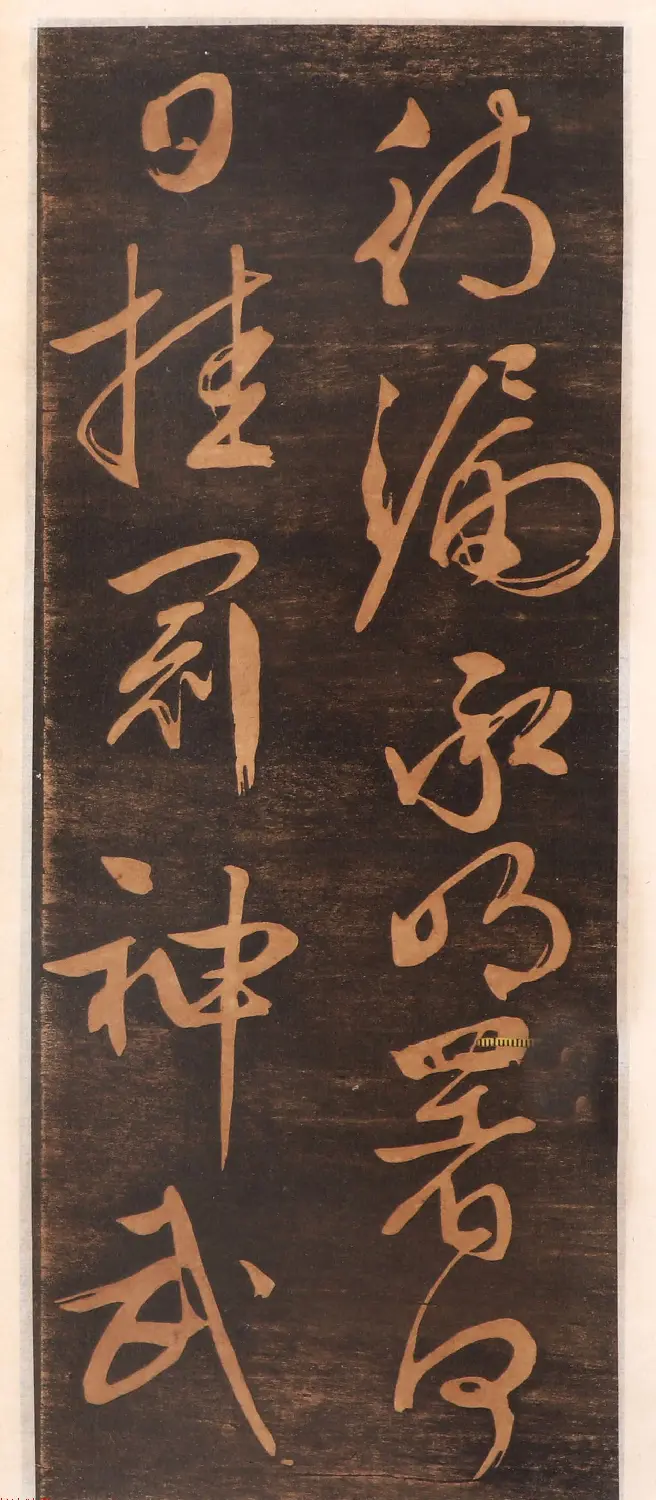 待漏承明署何
日挂冠神武